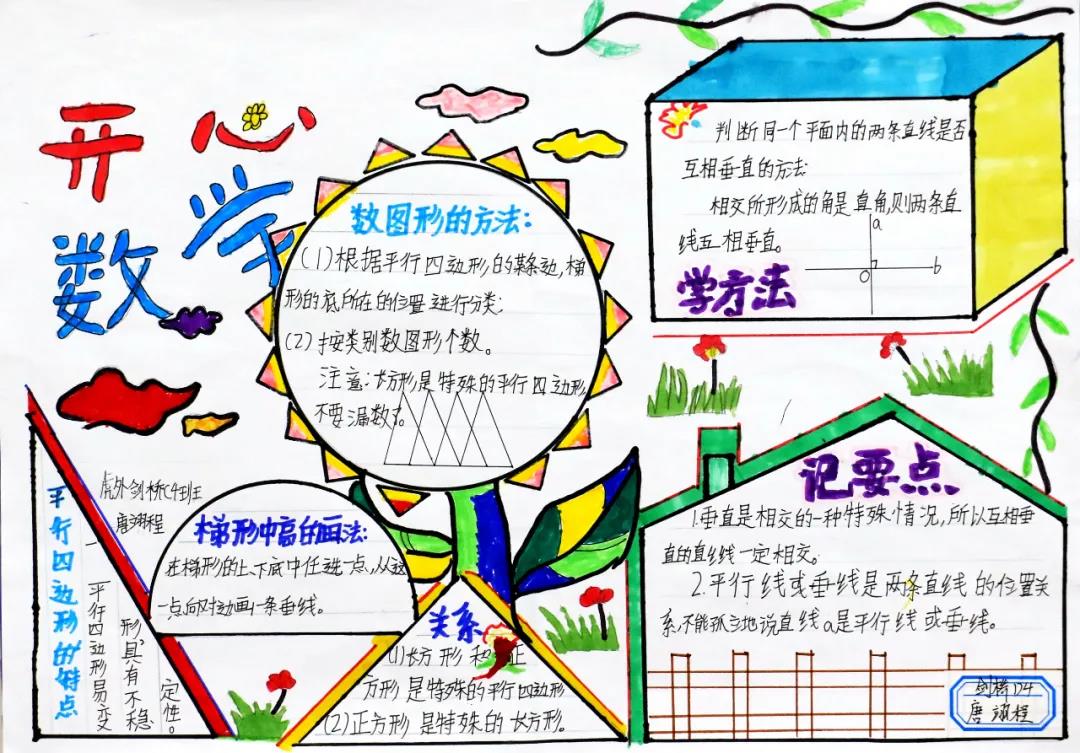 开心
数学
数图形的方法：
(1)根据平行四边形的某条边，梯
形的底所在的位置进行分类；
(2)按类别数图形个数。
注意：长方形是特殊的平行四边形
不要漏数了。
判断同一个平面内的两条直线是否
互相垂直的方法：
相交所形成的角是直角，则两条直
线互相垂直。
a
b
O
学方法
平行四边形的特点
平行四边形易变
形，具有不稳
定性。
虎外剑桥C4班
唐翊程
梯形中高的画法：
在梯形的上、下底中任选一点，从这
一点向对边画一条垂线。
关系
(1)长方形和正
方形是特殊的平行四边形
(2)正方形是特殊的长方形。
记要点
1.垂直是相交的一种特殊情况，所以互相垂
直的直线一定相交。
2.平行线或垂线是两条直线的位置关
系，不能孤立地说直线a是平行线或垂线。
剑桥D4
唐翊程